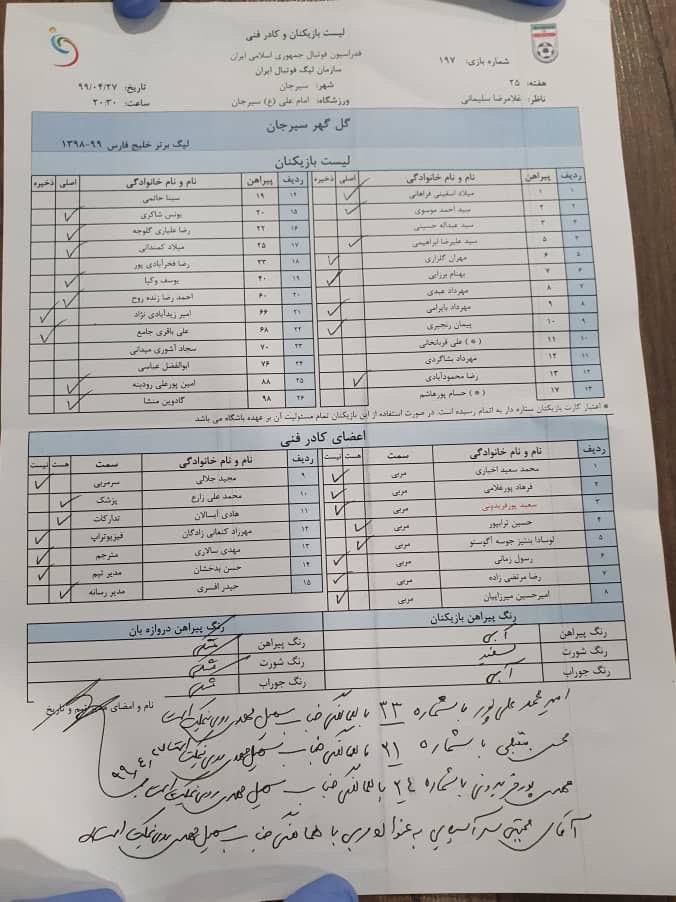 لیست بازیکنان و کادر فنی
فدراسیون فوتبال جمهوری اسلامی ایران
سازمان لیگ فوتبال ایران
شماره بازی: ۱۹۷
هفته: ۲۵
شهر: سیرجان
تاریخ: ۹۹/۰۴/۲۷
ناظر: غلامرضا سلیمانی
ورزشگاه: امام علی (ع) سیرجان
ساعت: ۲۰:۳۰
گل گهر سیرجان
لیگ برتر خلیج فارس ۹۹-۱۳۹۸
لیست بازیکنان
ردیف پیراهن نام و نام خانوادگی اصلی ذخیره
۱ ۱ میلاد اسفینی فراهانی
۲ ۲ سید احمد موسوی
۳ ۳ سید عبداله حسینی
۴ ۵ سید علیرضا ابراهیمی
۵ ۶ مهران گلزاری
۶ ۷ بهنام برزایی
۷ ۸ مهرداد عبدی
۸ ۹ مهرداد بایرامی
۹ ۱۰ پیمان رنجبری
۱۰ ۱۱ (*) علی قربانخانی
۱۱ ۱۲ مهرداد بشاگردی
۱۲ ۱۳ رضا محمودآبادی
۱۳ ۱۷ (*) حسام پورهاشم
ردیف پیراهن نام و نام خانوادگی اصلی ذخیره
۱۴ ۱۹ سینا حاتمی
۱۵ ۲۰ یونس شاکری
۱۶ ۲۲ رضا علیاری گلوجه
۱۷ ۲۵ میلاد کمندانی
۱۸ ۳۳ رضا فخرآبادی پور
۱۹ ۴۰ یوسف وکیا
۲۰ ۶۰ احمد رضا زنده روح
۲۱ ۶۶ امیر زیدآبادی نژاد
۲۲ ۶۸ علی باقری جامع
۲۳ ۷۰ سجاد آشوری میدانی
۲۴ ۷۶ ابوالفضل عباسی
۲۵ ۸۸ امین پورعلی رودبنه
۲۶ ۹۸ گادوین منشا
* اعتبار کارت بازیکنان ستاره دار به اتمام رسیده است. در صورت استفاده از این بازیکنان تمام مسئولیت آن بر عهده باشگاه می باشد
اعضای کادر فنی
ردیف نام و نام خانوادگی سمت هست نیست
۱ محمد سعید اخباری مربی
۲ فرهاد پورغلامی مربی
۳ سعید پورفریدونی مربی
۴ حسین ترابپور مربی
۵ لوسادا بنتیز جوسه آگوستو مربی
۶ رسول زمانی مربی
۷ رضا مرتضی زاده مربی
۸ امیرحسین میرزاییان مربی
ردیف نام و نام خانوادگی سمت هست نیست
۹ مجید جلالی سرمربی
۱۰ محمد علی زارع پزشک
۱۱ هادی آبسالان تدارکات
۱۲ مهرزاد کنعانی زادگان فیزیوتراپ
۱۳ مهدی سالاری مترجم
۱۴ حسن بدخشان مدیر تیم
۱۵ حیدر افسری مدیر رسانه
رنگ پیراهن بازیکنان
رنگ پیراهن آبی
رنگ شورت سفید
رنگ جوراب آبی
رنگ پیراهن دروازه بان
رنگ پیراهن مشکی
رنگ شورت مشکی
رنگ جوراب مشکی
نام و امضای تیم و تاریخ
امیر محمد علی پور با شماره ۳۳
با شماره ۲۱
پورفریدونی با شماره ۲۴
آقای به عنوان مربی با
۹۹,۴,۲۷